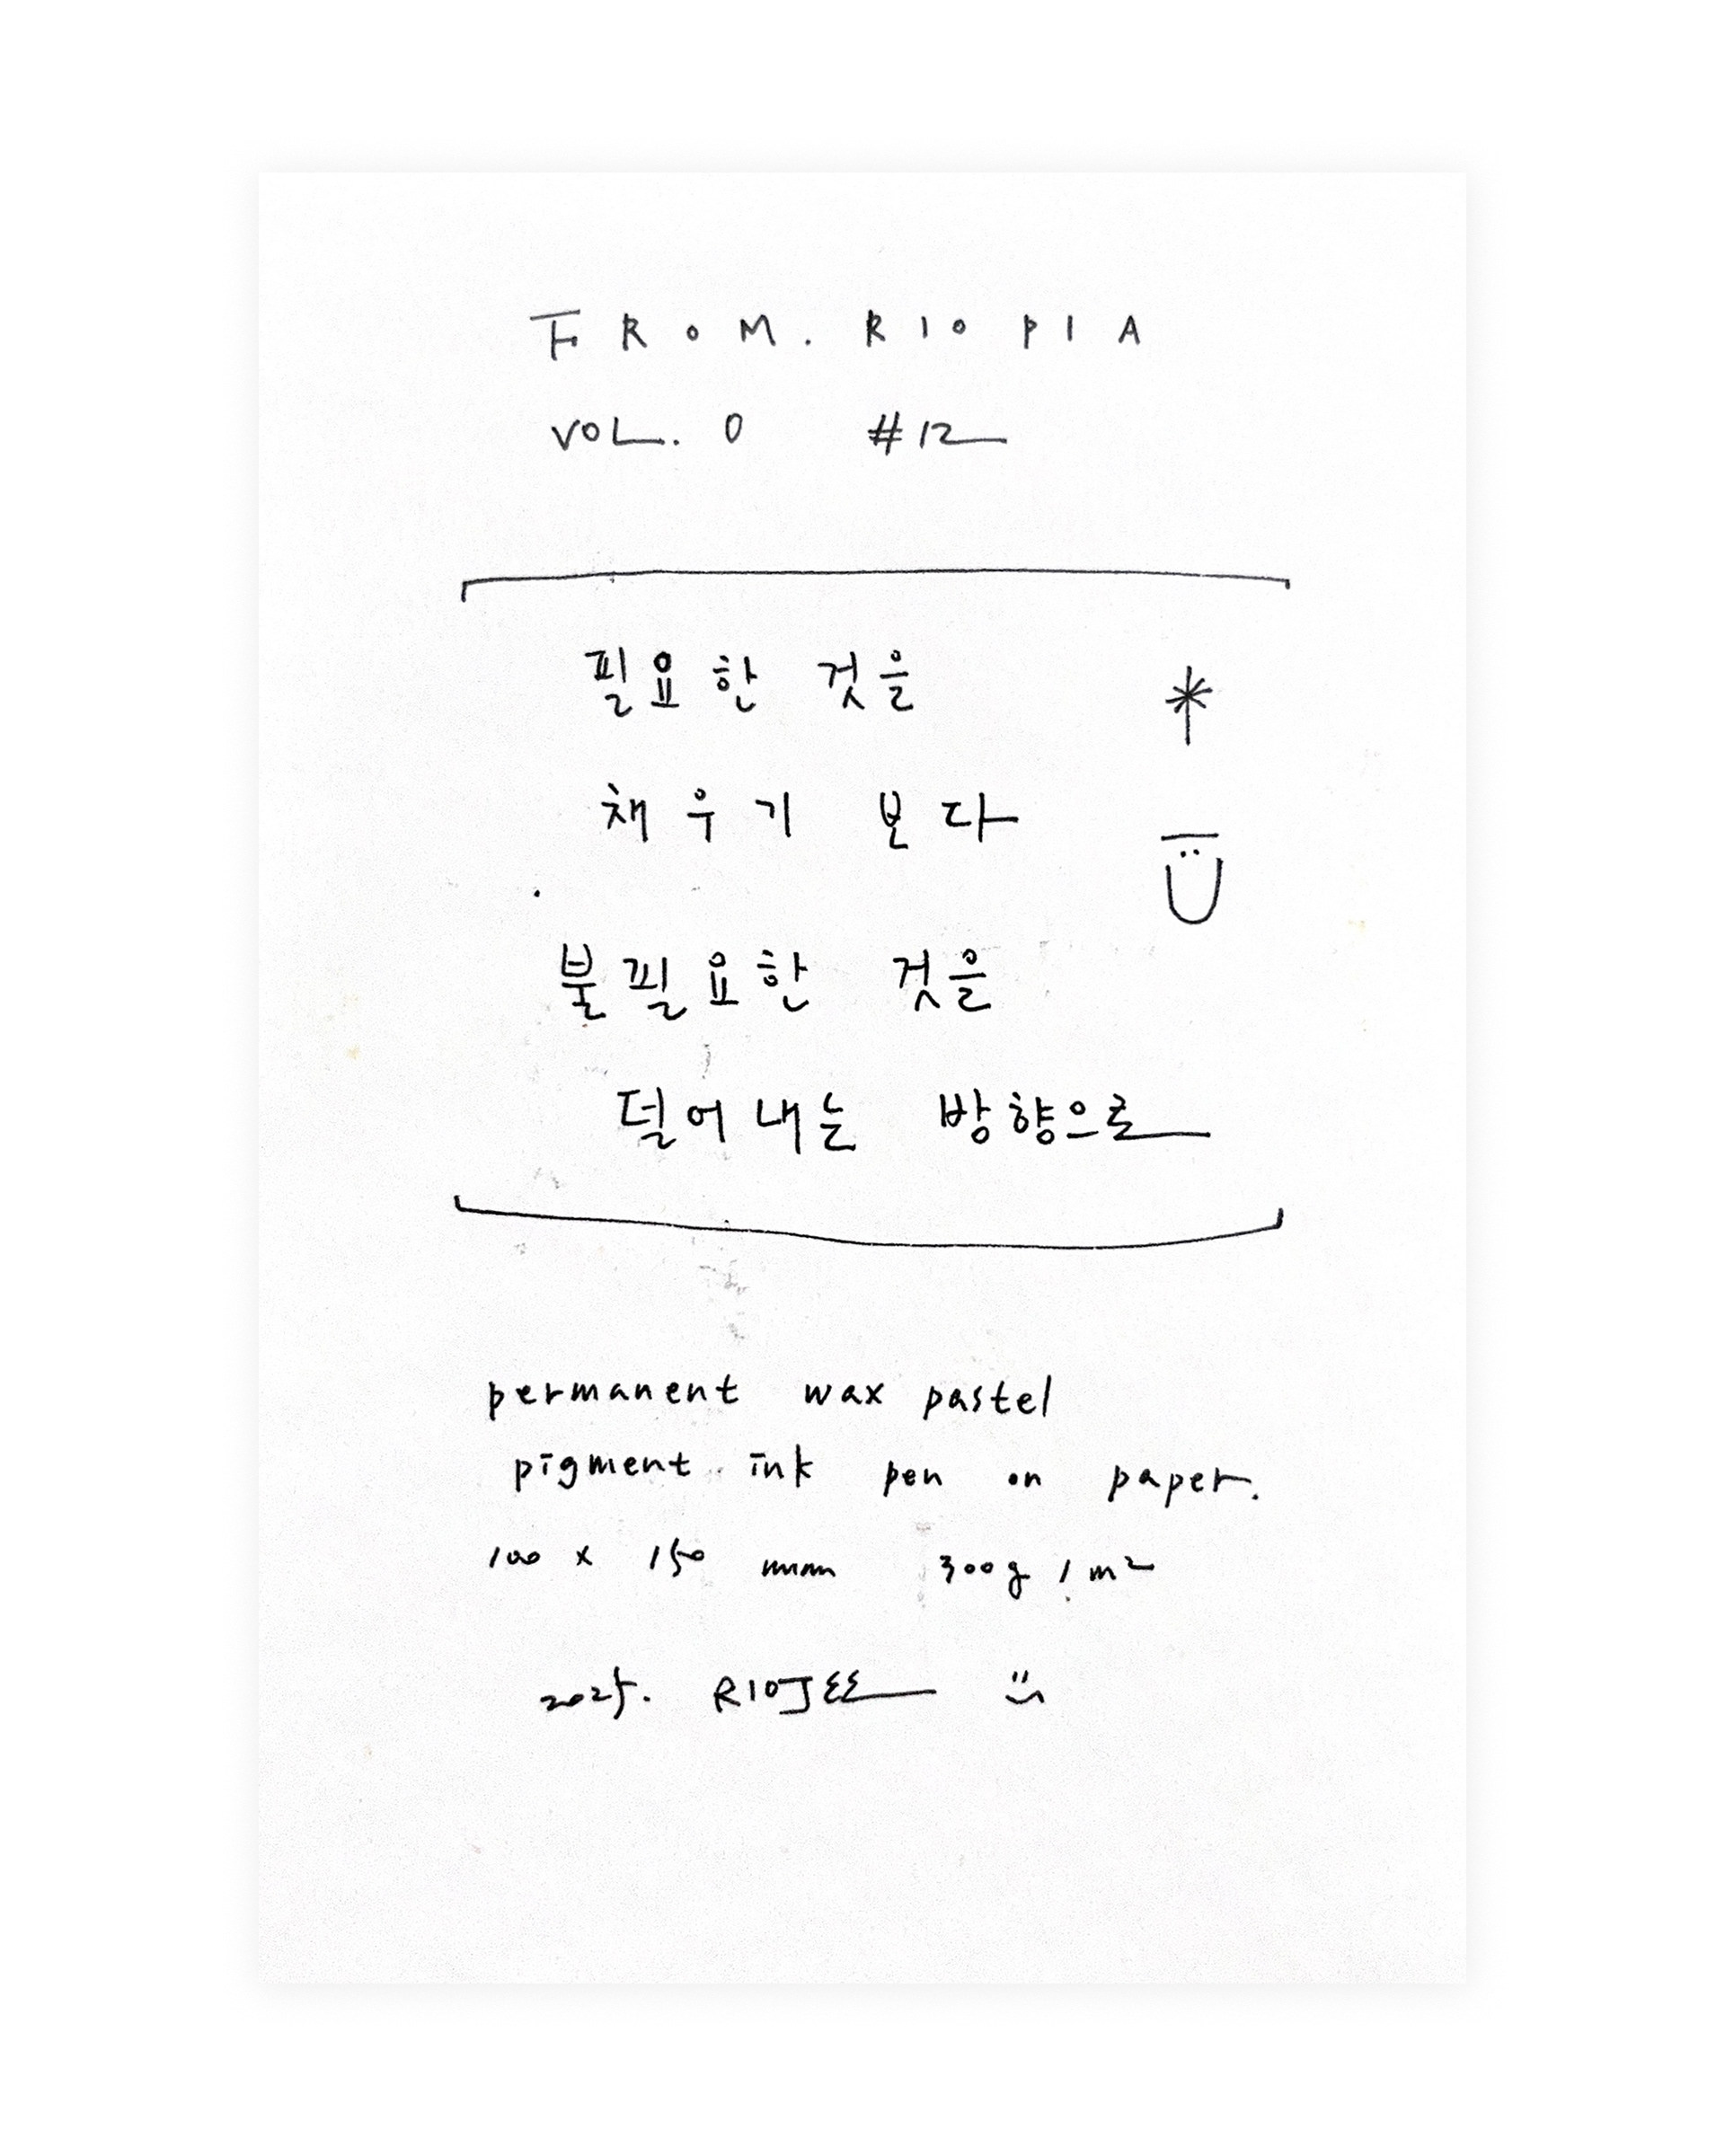 FROM. RIOPIA
VOL. 0 #12
필요한 것을
채우기 보다
불필요한 것을
덜어내는 방향으로
permanent wax pastel
pigment ink pen on paper.
100 x 150 mm 300g / m²
2025. RIOJ